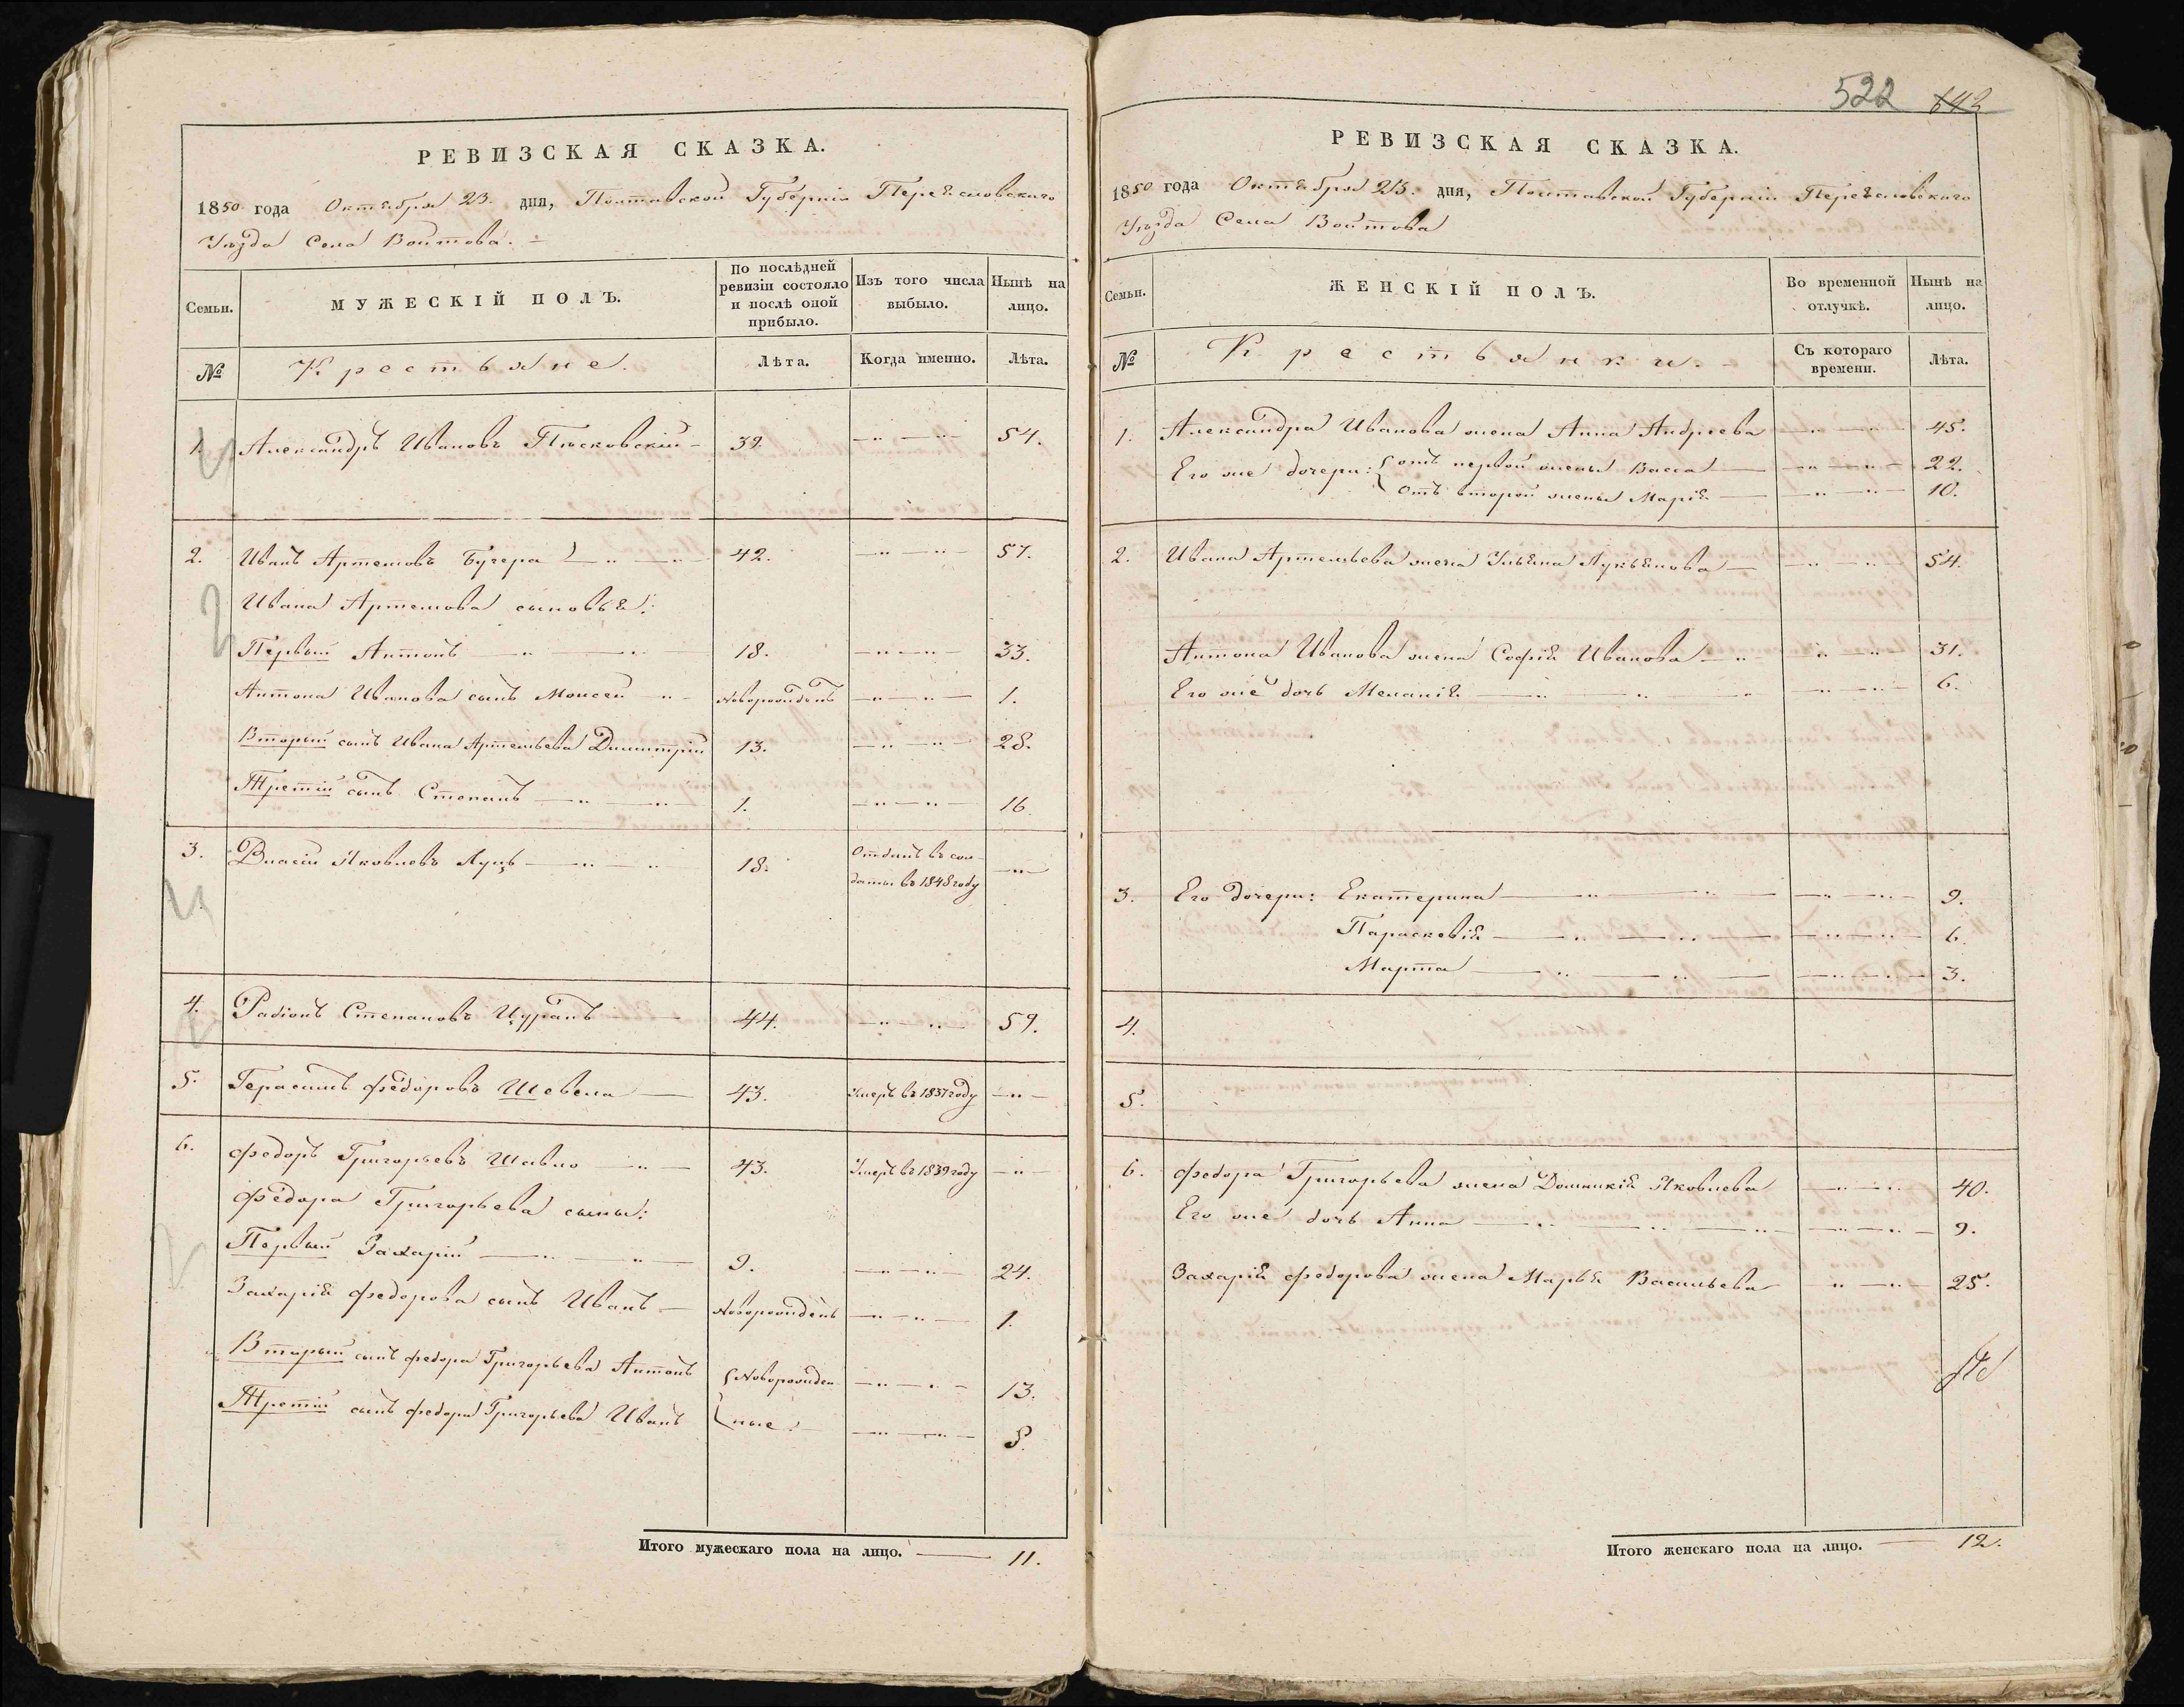 РЕВИЗСКАЯ СКАЗКА.
1850 года Октября 23. дня, Полтавской Губерніи Переяславского
Уѣзда Села Войтова.
Семьи.
МУЖЕСКІЙ ПОЛЪ.
По послѣдней ревизіи состояло и послѣ оной прибыло.
Изъ того числа выбыло.
Нынѣ на лицо.
№
Крестьяне.
Лѣта.
Когда именно.
Лѣта.
1. Александръ Ивановъ Пясковскій 39. 54.
2. Иванъ Артемовъ Бугера 42. 57.
Ивана Артемова сыновья:
Первый Антонъ 18. 33.
Антона Иванова сынъ Моисей Новорожденъ 1.
Вторый сынъ Ивана Артемьева Димитрій 13. 28.
Третій сынъ Степанъ 1. 16
3. Власій Яковлевъ Луць 18. Отданъ въ сол-
даты въ 1848 году
4. Радіонъ Степановъ Цуранъ 44. 59.
5. Герасимъ Федоровъ Шевела 43. Умеръ въ 1837 году
6. Федоръ Григорьевъ Шавло 43. Умеръ въ 1839 году
Федора Григорьева сыны:
Первый Захарій 9. 24.
Захарія Федорова сынъ Иванъ Новорожденъ 1.
Вторый сынъ Федора Григорьева Антонъ Новорожден- 13.
Третій сынъ Федора Григорьева Иванъ ные. 8.
Итого мужескаго пола на лицо. 11.
522 642
РЕВИЗСКАЯ СКАЗКА.
1850 года Октября 23. дня, Полтавской Губерніи Переяславского
Уѣзда Села Войтова
Семьи.
ЖЕНСКІЙ ПОЛЪ.
Во временной отлучкѣ.
Нынѣ на лицо.
№
Крестьянки.
Съ котораго времени.
Лѣта.
1. Александра Иванова жена Анна Андреева 45.
Его же дочери: отъ первой жены Васса 22.
Отъ второй жены Марія 10.
2. Ивана Артемьева жена Ульяна Лукьянова 54.
Антона Иванова жена Софія Иванова 31.
Его же дочь Меланія 6.
3. Его дочери: Екатерина 9.
Параскевія 6.
Марта 3.
4.
5.
6. Федора Григорьева жена Домникія Яковлева 40.
Его же дочь Анна 9.
Захарія Федорова жена Марья Васильева 25.
Итого женскаго пола на лицо. 12.